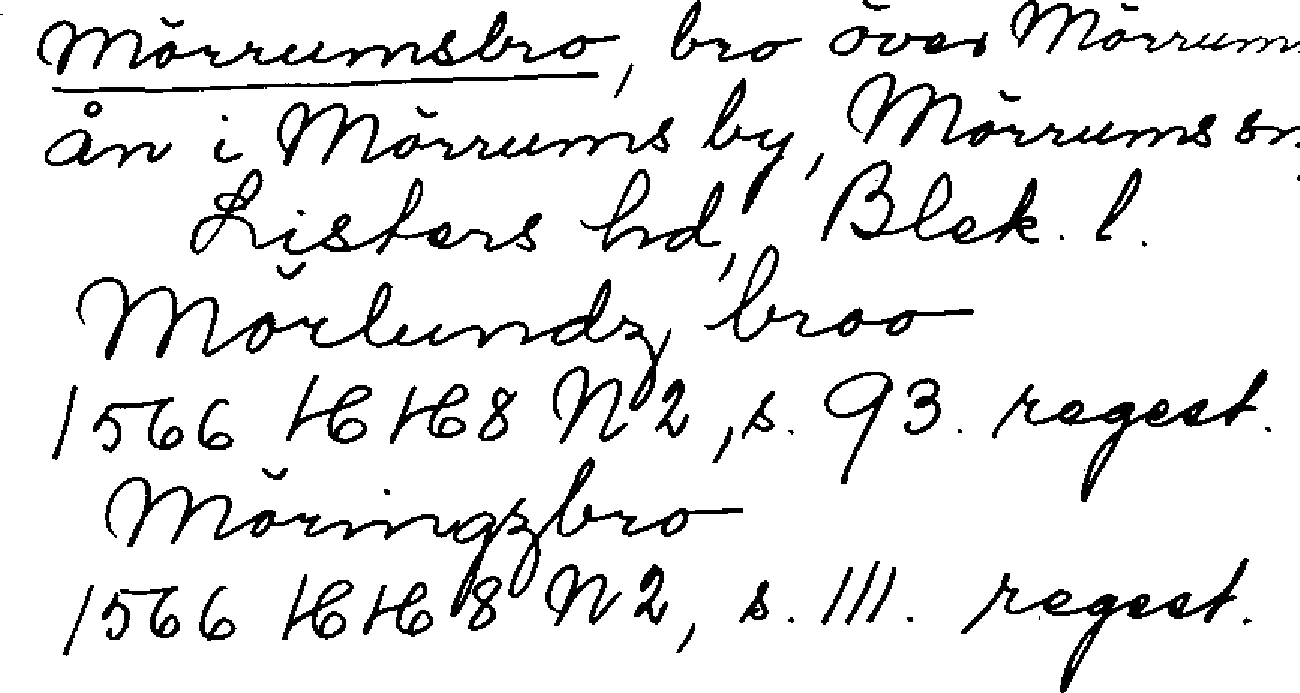 Mörrumsbro, bro över Mörrums
ån i Mörrums by, Mörrums sn,
Listers hd, Blek. l.
Mörlundz broo
1566 HH 8 N 2, s. 93. regest.
Möringzbro
1566 HH 8 N 2, s. 111. regest.